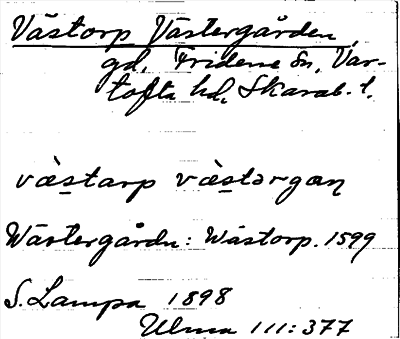 Västorp Västergården,
gd, Fridene sn, Var-
tofta hd, Skarab. l.
væ̀starp væ̀stərgæn
Wästergårdn: Wästorp. 1599
S. Lampa 1898
Ulma 111:377